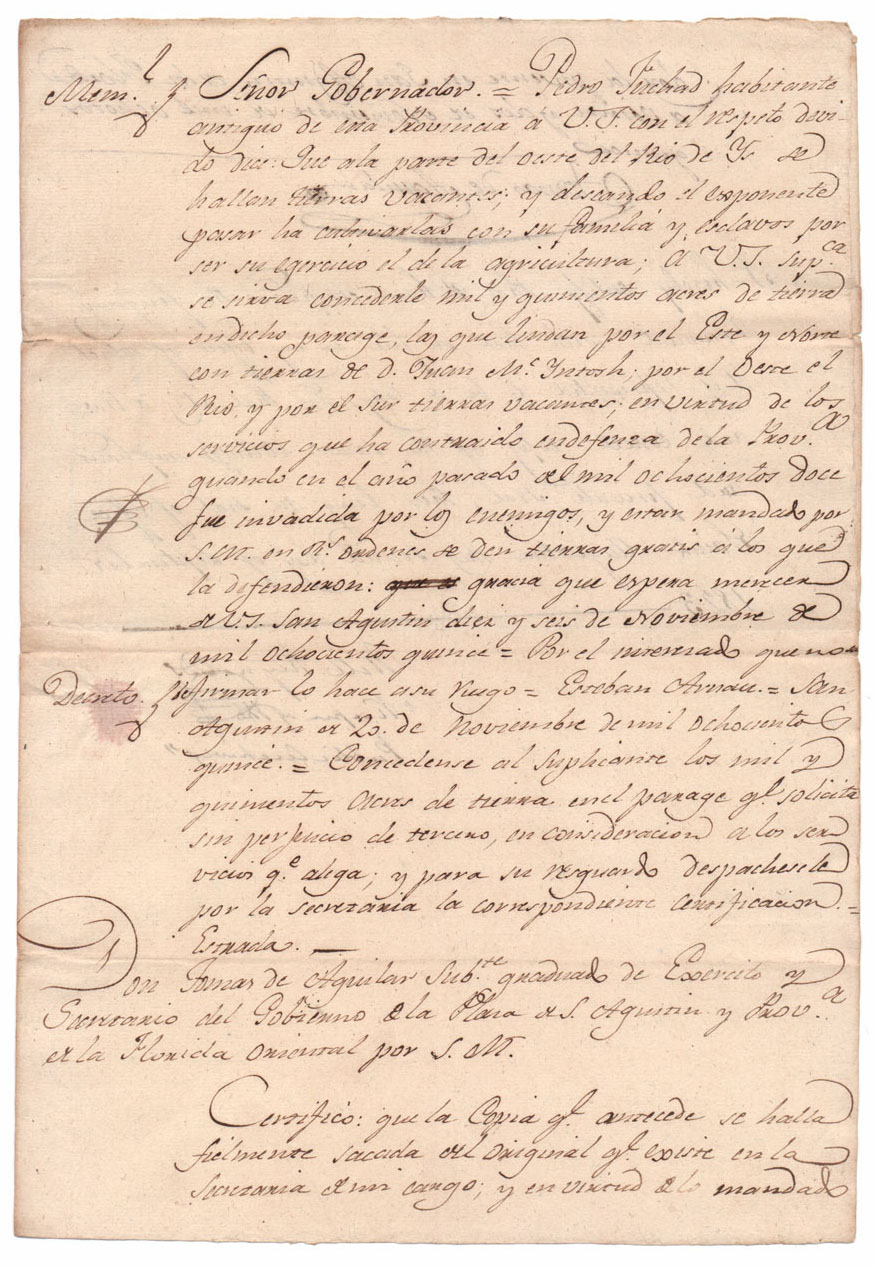 Mem.l Señor Gobernador. = Pedro habitante
antiguo de esta Provincia a V.S. con el respeto devi-
do dice: Que ala parte del oeste del Rio de Ys se
hallan tierras vacantes; y deseando el exponente
pasar ha cultivarlas con su familia y esclavos por
ser su egercicio el de la agricultura; A V.S. Sup.ca
se sirva concederle mil y quinientos acres de tierra
endicho parege, las que lindan por el Este y Norte
con tierras de D. Juan M.c Yntosh; por el Oeste el
Rio, y por el Sur tierras vacantes; en virtud de los
servicios que ha contraido endefenza de la Prov.a
quando en el año pasado de mil ochocientos doce
fue invadida por los enemigos, y estar mandado por
S.M. en R.s ordenes se den tierras gratis á los que
la defendieron: gracia que espera merecer
de V.S. San Agustin diez y seis de Noviembre de
mil ochocientos quince = Por el interesado que no
Decreto. firmar lo hace asu ruego = Esteban Arnau. = San
Agustin de 20. de Noviembre de mil ochocientos
quince. = Concedense al suplicante los mil y
quinientos acres de tierra enel parage q.e solicita
sin perjuicio de tercero, en consideracion a los ser
vicios q.e alega; y para su resguardo despachesele
por la secretaria la correspondiente certificacion. =
Estrada. —
Don Tomas de Aguilar Sub.te graduado de Exercito y
Secretario del Gobierno de la Plaza de S. Agustin y Prov.a
de la Florida Oriental por S. M.
Certifico: que la Copia q.e antecede se halla
fielmente sacada del original q.e existe en la
Secretaria de mi cargo; y en virtud de lo mandado